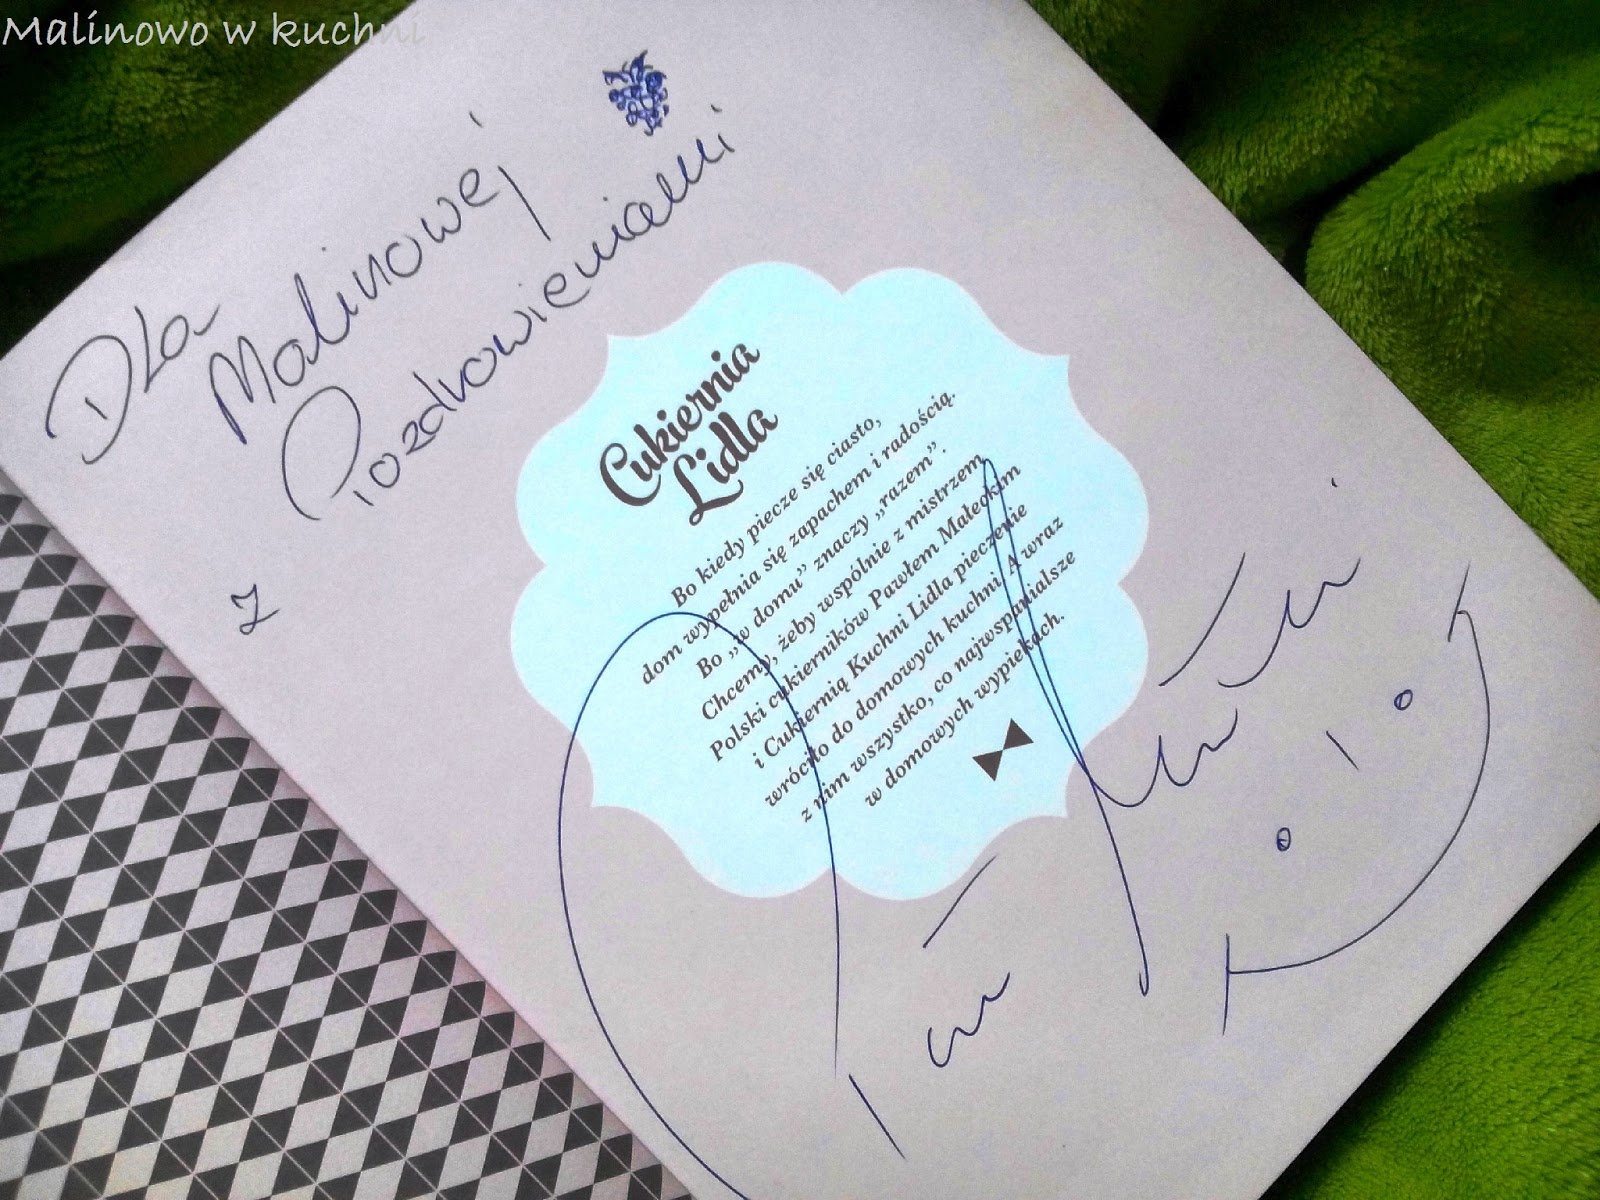 Malinowo w kuchni
Dla
Malinowej
z Pozdrowieniami
Cukiernia
Lidla
Bo kiedy piecze się ciasto,
dom wypełnia się zapachem i radością.
Bo „w domu” znaczy „razem”.
Chcemy, żeby wspólnie z mistrzem
Polski cukierników Pawłem Małeckim
i Cukiernią Kuchni Lidla pieczenie
wróciło do domowych kuchni. A wraz
z nim wszystko, co najwspanialsze
w domowych wypiekach.